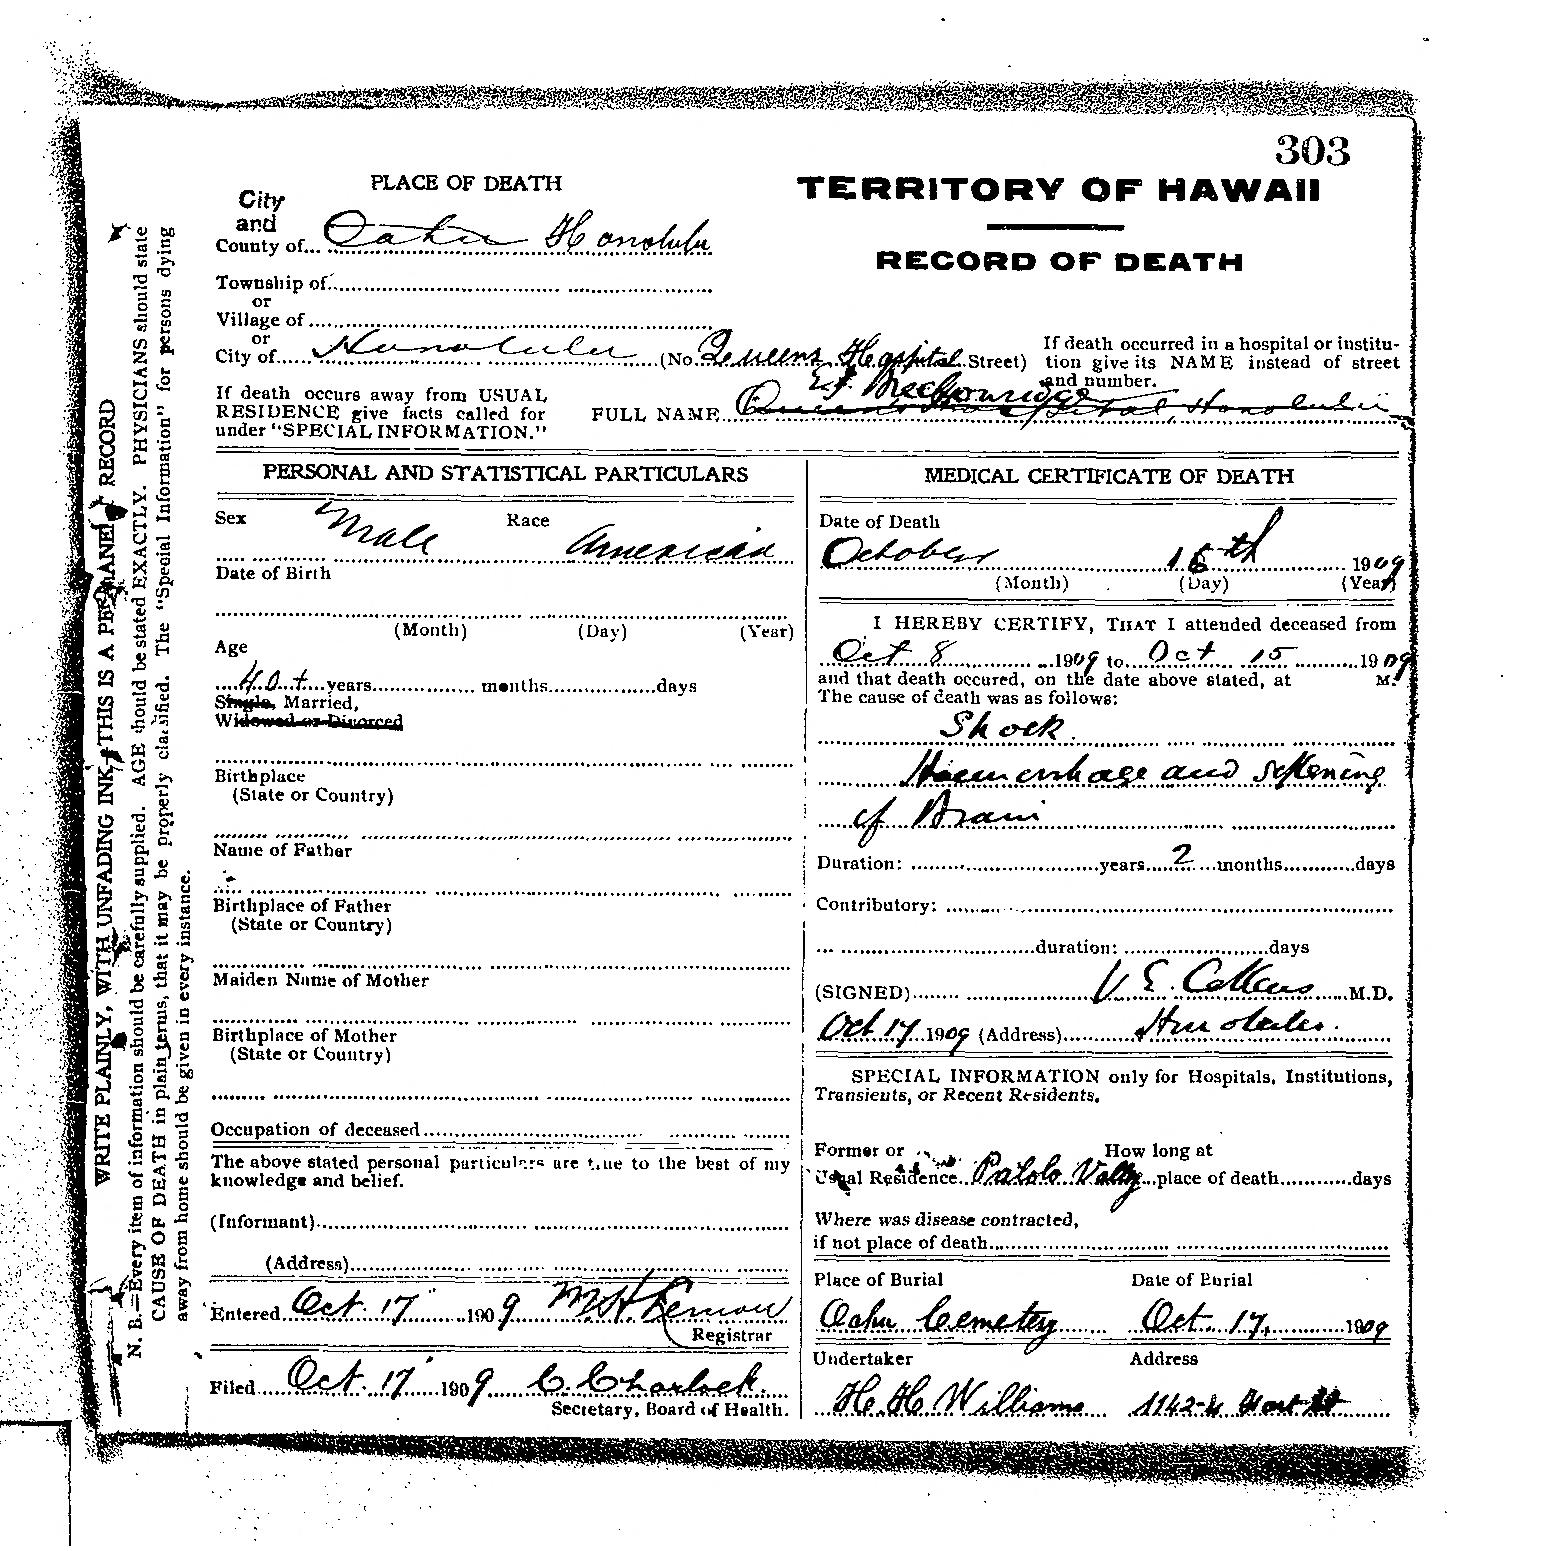 303
PLACE OF DEATH
City
and
County of... Oahu Honolulu
Township of
or
Village of
or
City of Honolulu (No. Queens Hospital Street)
If death occurs away from USUAL
RESIDENCE give facts called for
under "SPECIAL INFORMATION."
TERRITORY OF HAWAII
RECORD OF DEATH
If death occurred in a hospital or institu-
tion give its NAME instead of street
and number.
FULL NAME Queen's Hospital, Honolulu
WRITE PLAINLY, WITH UNFADING INK, THIS IS A PERMANENT RECORD
N. B.—Every item of information should be carefully supplied. AGE should be stated EXACTLY. PHYSICIANS should state
CAUSE OF DEATH in plain terms, that it may be properly classified. The "Special Information" for persons dying
away from home should be given in every instance.
PERSONAL AND STATISTICAL PARTICULARS
Sex Male Race American
Date of Birth
(Month) (Day) (Year)
Age
40+ years months days
Single, Married,
Widowed or Divorced
Birthplace
(State or Country)
Name of Father
Birthplace of Father
(State or Country)
Maiden Name of Mother
Birthplace of Mother
(State or Country)
Occupation of deceased
The above stated personal particulars are true to the best of my
knowledge and belief.
(Informant)
(Address)
Entered Oct. 17 1909 M. H. Lemon
Registrar
Filed Oct. 17 1909 C. Charlock.
Secretary, Board of Health.
MEDICAL CERTIFICATE OF DEATH
Date of Death
October 15th 1909
(Month) (Day) (Year)
I HEREBY CERTIFY, THAT I attended deceased from
Oct 8 1909 to Oct 15 1909
and that death occured, on the date above stated, at M.
The cause of death was as follows:
Shock.
Haemorrhage and softening
of Brain
Duration: years 2 months days
Contributory:
duration: days
(SIGNED) V. E. Collins M.D.
Oct 17 1909 (Address) Honolulu.
SPECIAL INFORMATION only for Hospitals, Institutions,
Transients, or Recent Residents.
Former or How long at
Usual Residence Palolo Valley place of death days
Where was disease contracted,
if not place of death
Place of Burial Date of Burial
Oahu Cemetery Oct. 17, 1909
Undertaker Address
H. H. Williams 1142-4 Fort St